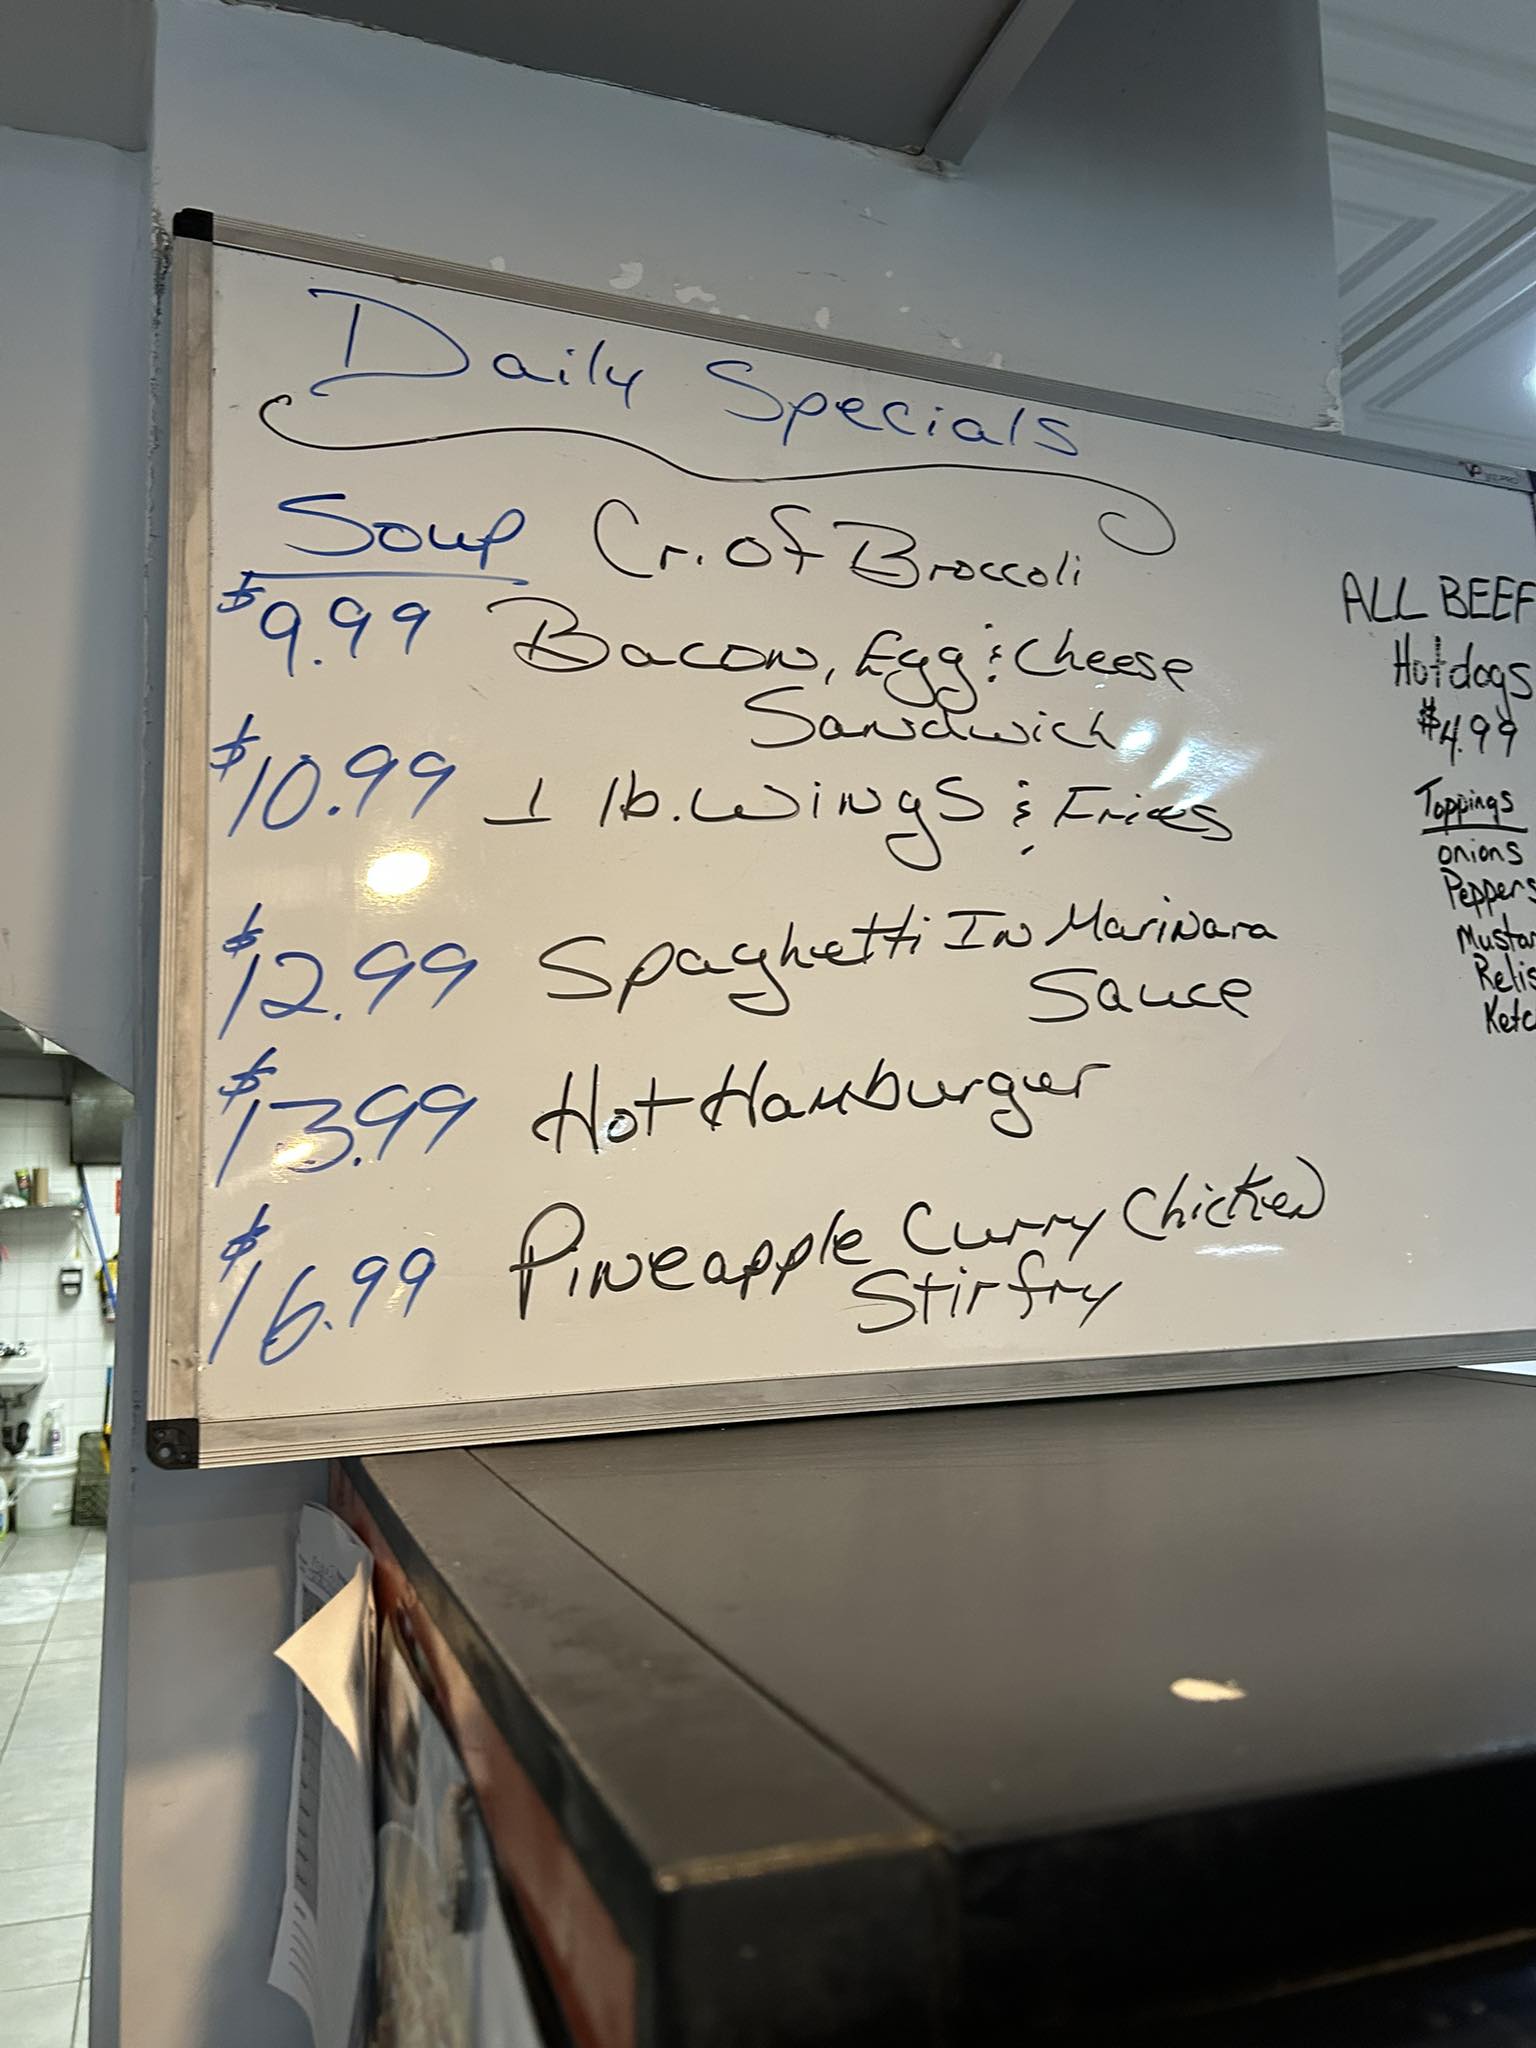 Daily Specials
Soup Cr. of Broccoli
$9.99 Bacon, Egg & Cheese
Sandwich
$10.99 1 lb. Wings & Fries
$12.99 Spaghetti In Marinara
Sauce
$13.99 Hot Hamburger
$16.99 Pineapple Curry Chicken
Stirfry
ALL BEEF
Hotdogs
$4.99
Toppings
onions
Peppers
Mustar
Relis
Ketc